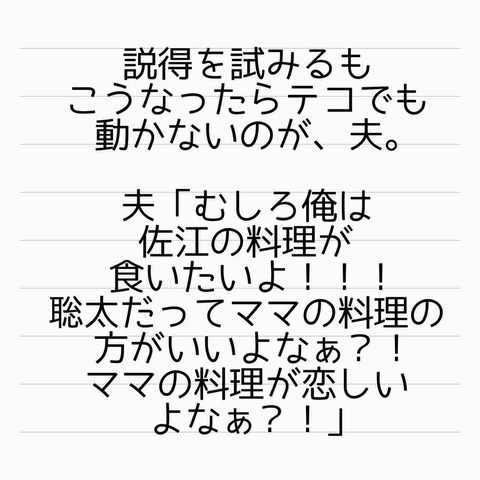 説得を試みるも
こうなったらテコでも
動かないのが、夫。
夫「むしろ俺は
佐江の料理が
食いたいよ！！！
聡太だってママの料理の
方がいいよなぁ？！
ママの料理が恋しい
よなぁ？！」